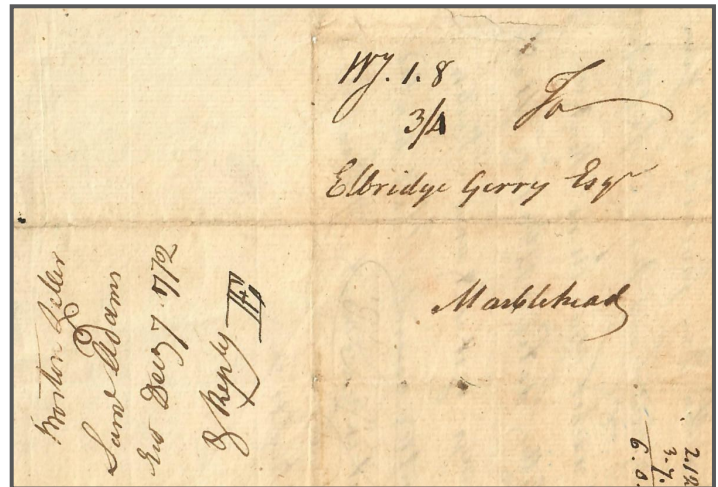 Wy. 1. 8
3/4
To
Elbridge Gerry Esqr
Marblehead
Boston Letter
Saml Adams
Decr 7 1772
& Reply
2.12
3.4.
6.0.